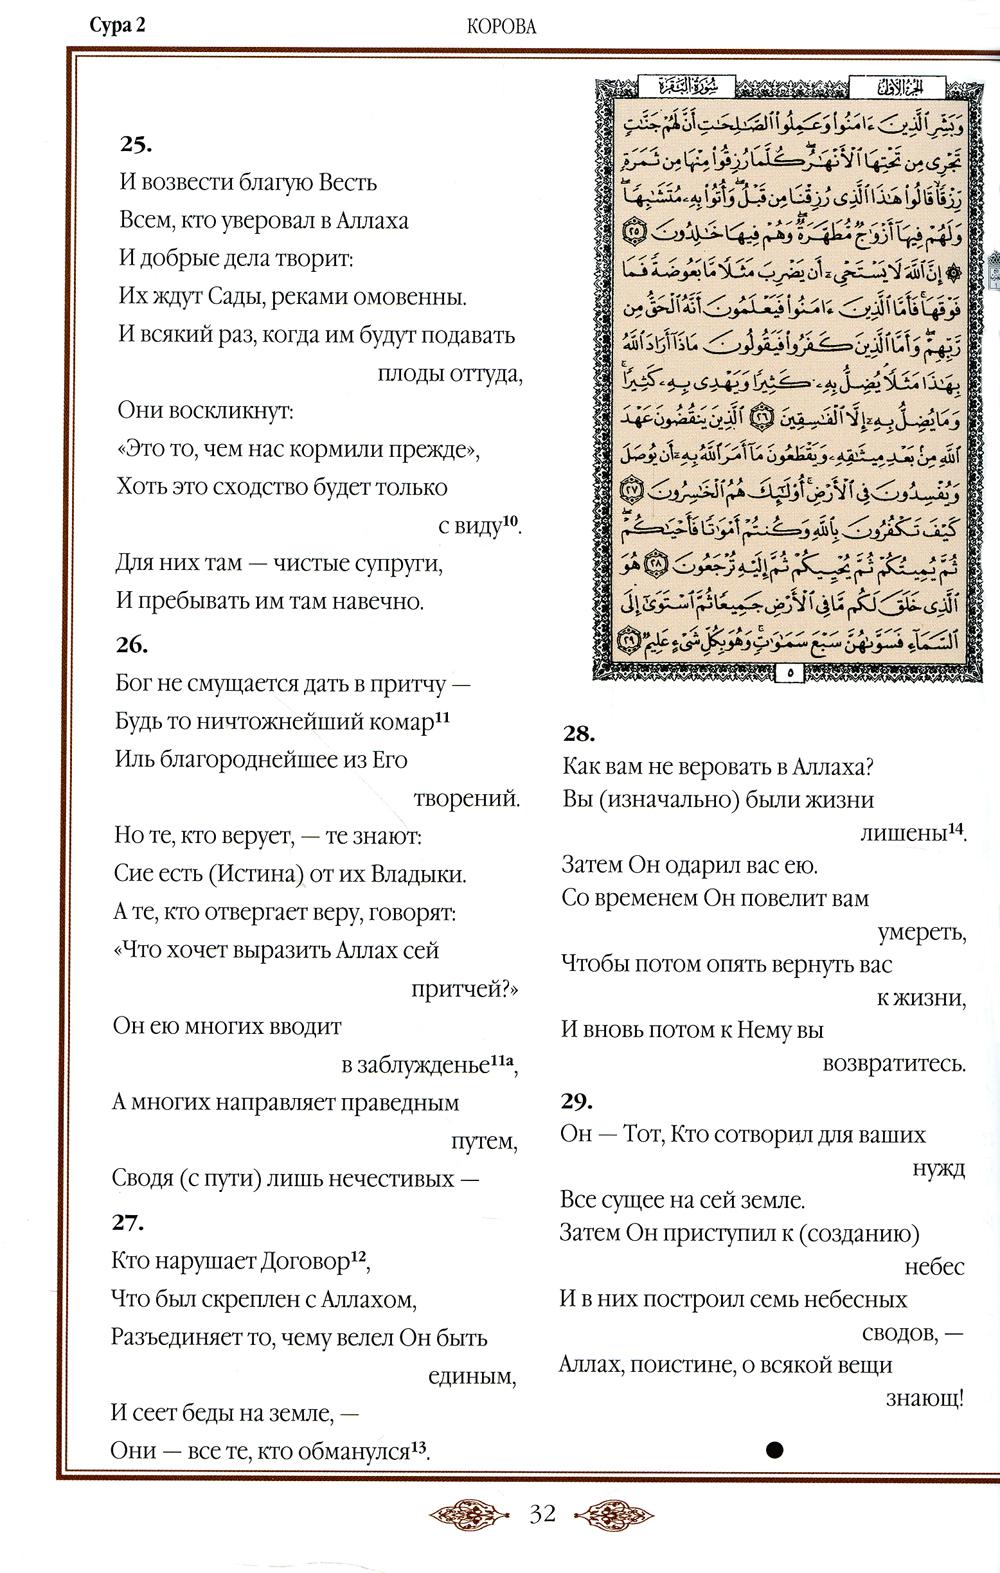 Сура 2
КОРОВА
25.
И возвести благую Весть
Всем, кто уверовал в Аллаха
И добрые дела творит:
Их ждут Сады, реками омовенны.
И всякий раз, когда им будут подавать
плоды оттуда,
Они воскликнут:
«Это то, чем нас кормили прежде»,
Хоть это сходство будет только
с виду¹⁰.
Для них там — чистые супруги,
И пребывать им там навечно.
26.
Бог не смущается дать в притчу —
Будь то ничтожнейший комар¹¹
Иль благороднейшее из Его
творений.
Но те, кто верует, — те знают:
Сие есть (Истина) от их Владыки.
А те, кто отвергает веру, говорят:
«Что хочет выразить Аллах сей
притчей?»
Он ею многих вводит
в заблужденье¹¹ᵃ,
А многих направляет праведным
путем,
Сводя (с пути) лишь нечестивых —
27.
Кто нарушает Договор¹²,
Что был скреплен с Аллахом,
Разъединяет то, чему велел Он быть
единым,
И сеет беды на земле, —
Они — все те, кто обманулся¹³.
سورة البقرة
الجزء الأول
وَبَشِّرِ الَّذِينَ ءَامَنُوا وَعَمِلُوا الصَّالِحَاتِ أَنَّ لَهُمْ جَنَّاتٍ
تَجْرِي مِن تَحْتِهَا الْأَنْهَارُ كُلَّمَا رُزِقُوا مِنْهَا مِن ثَمَرَةٍ
رِّزْقًا قَالُوا هَذَا الَّذِي رُزِقْنَا مِن قَبْلُ وَأُتُوا بِهِ مُتَشَابِهًا
وَلَهُمْ فِيهَا أَزْوَاجٌ مُّطَهَّرَةٌ وَهُمْ فِيهَا خَالِدُونَ ٢٥
۞ إِنَّ اللَّهَ لَا يَسْتَحْيِ أَن يَضْرِبَ مَثَلًا مَّا بَعُوضَةً فَمَا
فَوْقَهَا فَأَمَّا الَّذِينَ ءَامَنُوا فَيَعْلَمُونَ أَنَّهُ الْحَقُّ مِن
رَّبِّهِمْ وَأَمَّا الَّذِينَ كَفَرُوا فَيَقُولُونَ مَاذَا أَرَادَ اللَّهُ
بِهَذَا مَثَلًا يُضِلُّ بِهِ كَثِيرًا وَيَهْدِي بِهِ كَثِيرًا
وَمَا يُضِلُّ بِهِ إِلَّا الْفَاسِقِينَ ٢٦ الَّذِينَ يَنقُضُونَ عَهْدَ
اللَّهِ مِنْ بَعْدِ مِيثَاقِهِ وَيَقْطَعُونَ مَا أَمَرَ اللَّهُ بِهِ أَن يُوصَلَ
وَيُفْسِدُونَ فِي الْأَرْضِ أُولَئِكَ هُمُ الْخَاسِرُونَ ٢٧
كَيْفَ تَكْفُرُونَ بِاللَّهِ وَكُنتُمْ أَمْوَاتًا فَأَحْيَاكُمْ
ثُمَّ يُمِيتُكُمْ ثُمَّ يُحْيِيكُمْ ثُمَّ إِلَيْهِ تُرْجَعُونَ ٢٨ هُوَ
الَّذِي خَلَقَ لَكُم مَّا فِي الْأَرْضِ جَمِيعًا ثُمَّ اسْتَوَى إِلَى
السَّمَاءِ فَسَوَّاهُنَّ سَبْعَ سَمَاوَاتٍ وَهُوَ بِكُلِّ شَيْءٍ عَلِيمٌ ٢٩
٥
28.
Как вам не веровать в Аллаха?
Вы (изначально) были жизни
лишены¹⁴.
Затем Он одарил вас ею.
Со временем Он повелит вам
умереть,
Чтобы потом опять вернуть вас
к жизни,
И вновь потом к Нему вы
возвратитесь.
29.
Он — Тот, Кто сотворил для ваших
нужд
Все сущее на сей земле.
Затем Он приступил к (созданию)
небес
И в них построил семь небесных
сводов, —
Аллах, поистине, о всякой вещи
знающ!
32